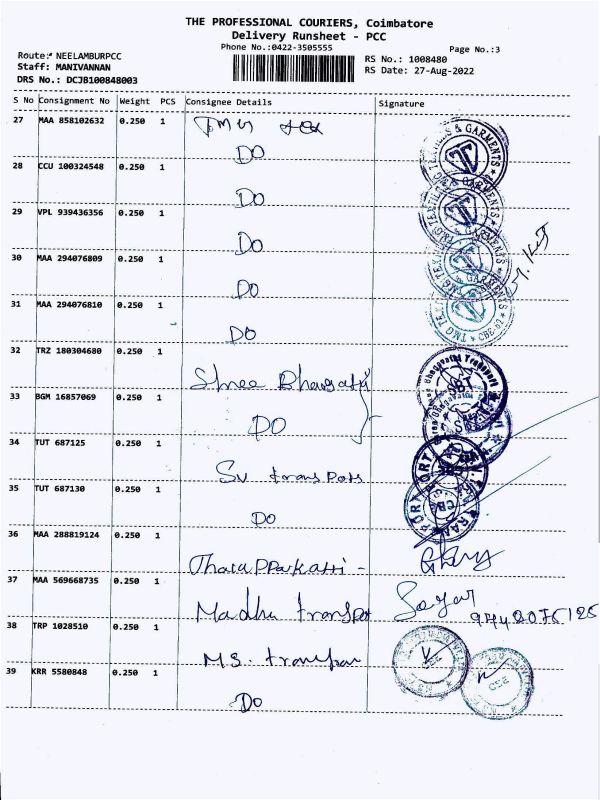 THE PROFESSIONAL COURIERS, Coimbatore
Delivery Runsheet - PCC
Phone No.:0422-3505555
Page No.:3
Route: NEELAMBURPCC
RS No.: 1008480
Staff: MANIVANNAN
RS Date: 27-Aug-2022
DRS No.: DCJB100848003
S No Consignment No Weight PCS Consignee Details Signature
27 MAA 858102632 0.250 1
DO
28 CCU 100324548 0.250 1
DO
29 VPL 939436356 0.250 1
DO
30 MAA 294076809 0.250 1
DO
31 MAA 294076810 0.250 1
DO
32 TRZ 180304680 0.250 1
Shree
33 BGM 16857069 0.250 1
DO
34 TUT 687125 0.250 1
SV
35 TUT 687130 0.250 1
DO
36 MAA 288819124 0.250 1
37 MAA 569668735 0.250 1
Madhu
38 TRP 1028510 0.250 1
M.S.
39 KRR 5580848 0.250 1
DO